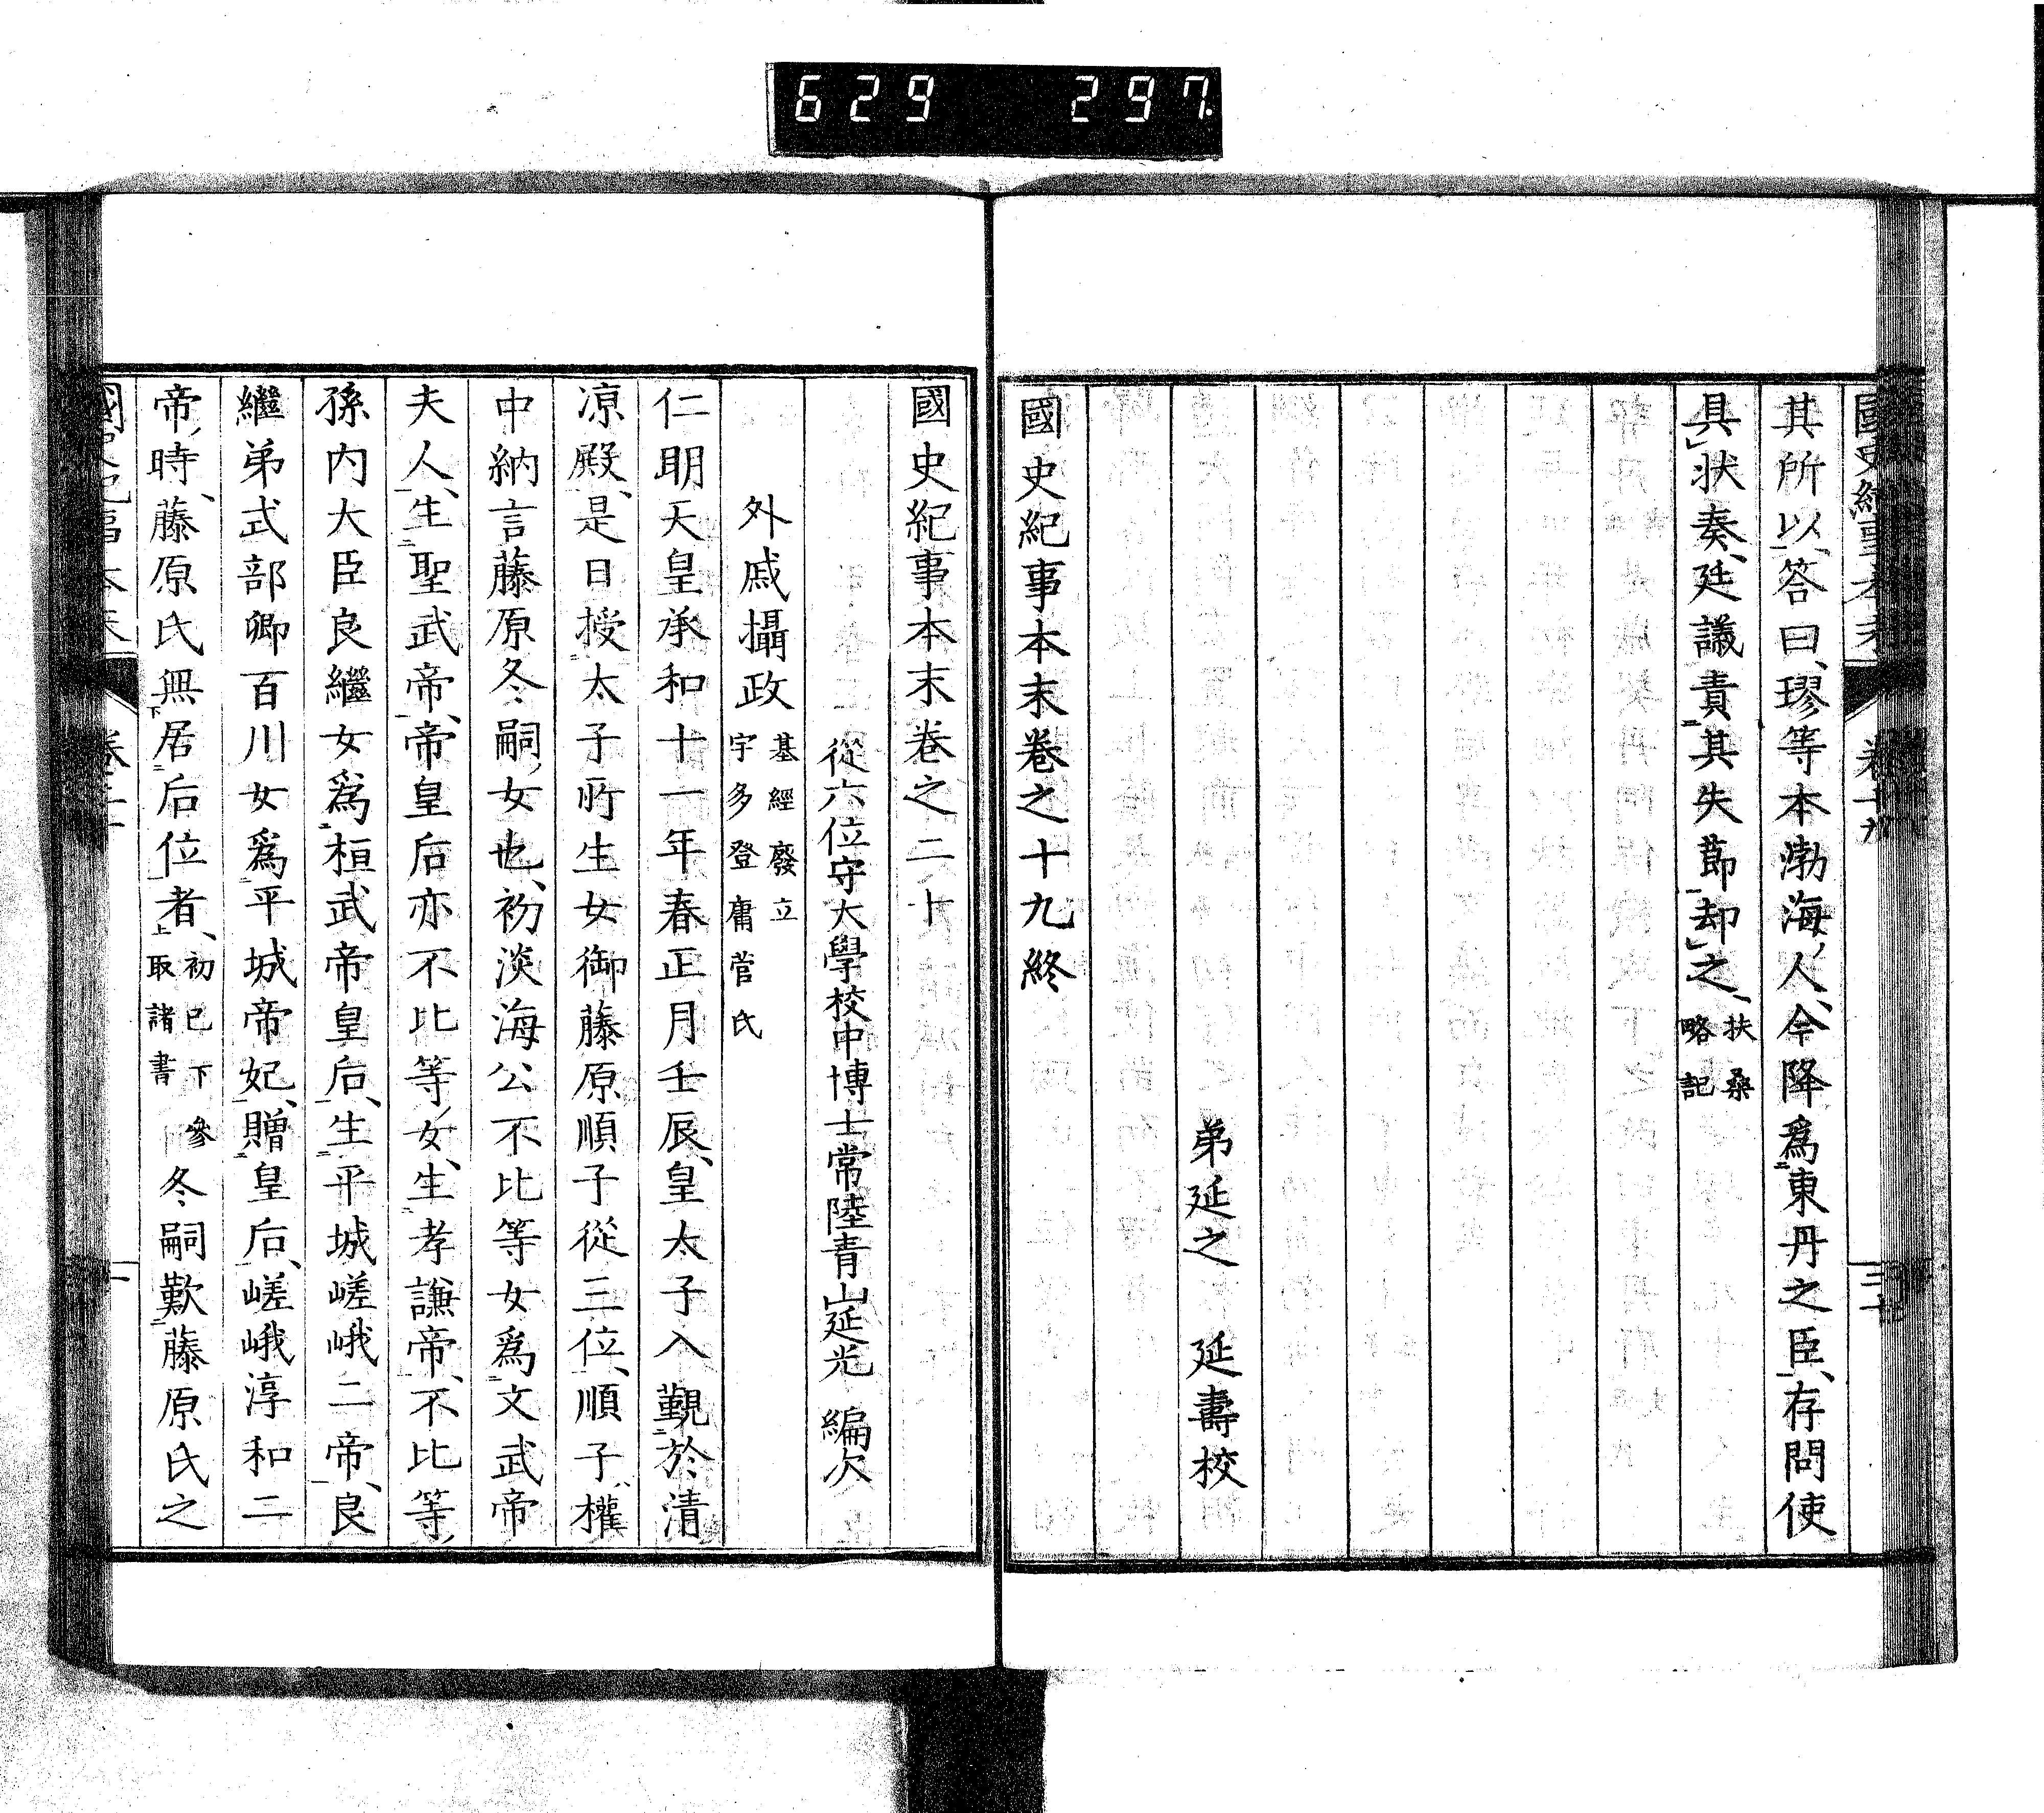 629 297
其所以、答曰、璆等本渤海人、今降爲東丹之臣、存問使
具狀奏、廷議責其失節却之、扶桑
略記
弟延之 延壽校
國史紀事本末卷之十九終
國史紀事本末卷之二十
從六位守大學校中博士常陸青山延光 編次
外戚攝政 基經廢立
宇多登庸菅氏
仁明天皇承和十一年春正月壬辰、皇太子入覲於清
凉殿、是日授太子所生女御藤原順子從三位、順子、權
中納言藤原冬嗣女也、初淡海公不比等女爲文武帝
夫人、生聖武帝、帝皇后亦不比等女、生孝謙帝、不比等
孫內大臣良繼女爲桓武帝皇后、生平城嵯峨二帝、良
繼弟式部卿百川女爲平城帝妃、贈皇后、嵯峨淳和二
帝時、藤原氏無居后位者、初已下參
取諸書 冬嗣歎藤原氏之